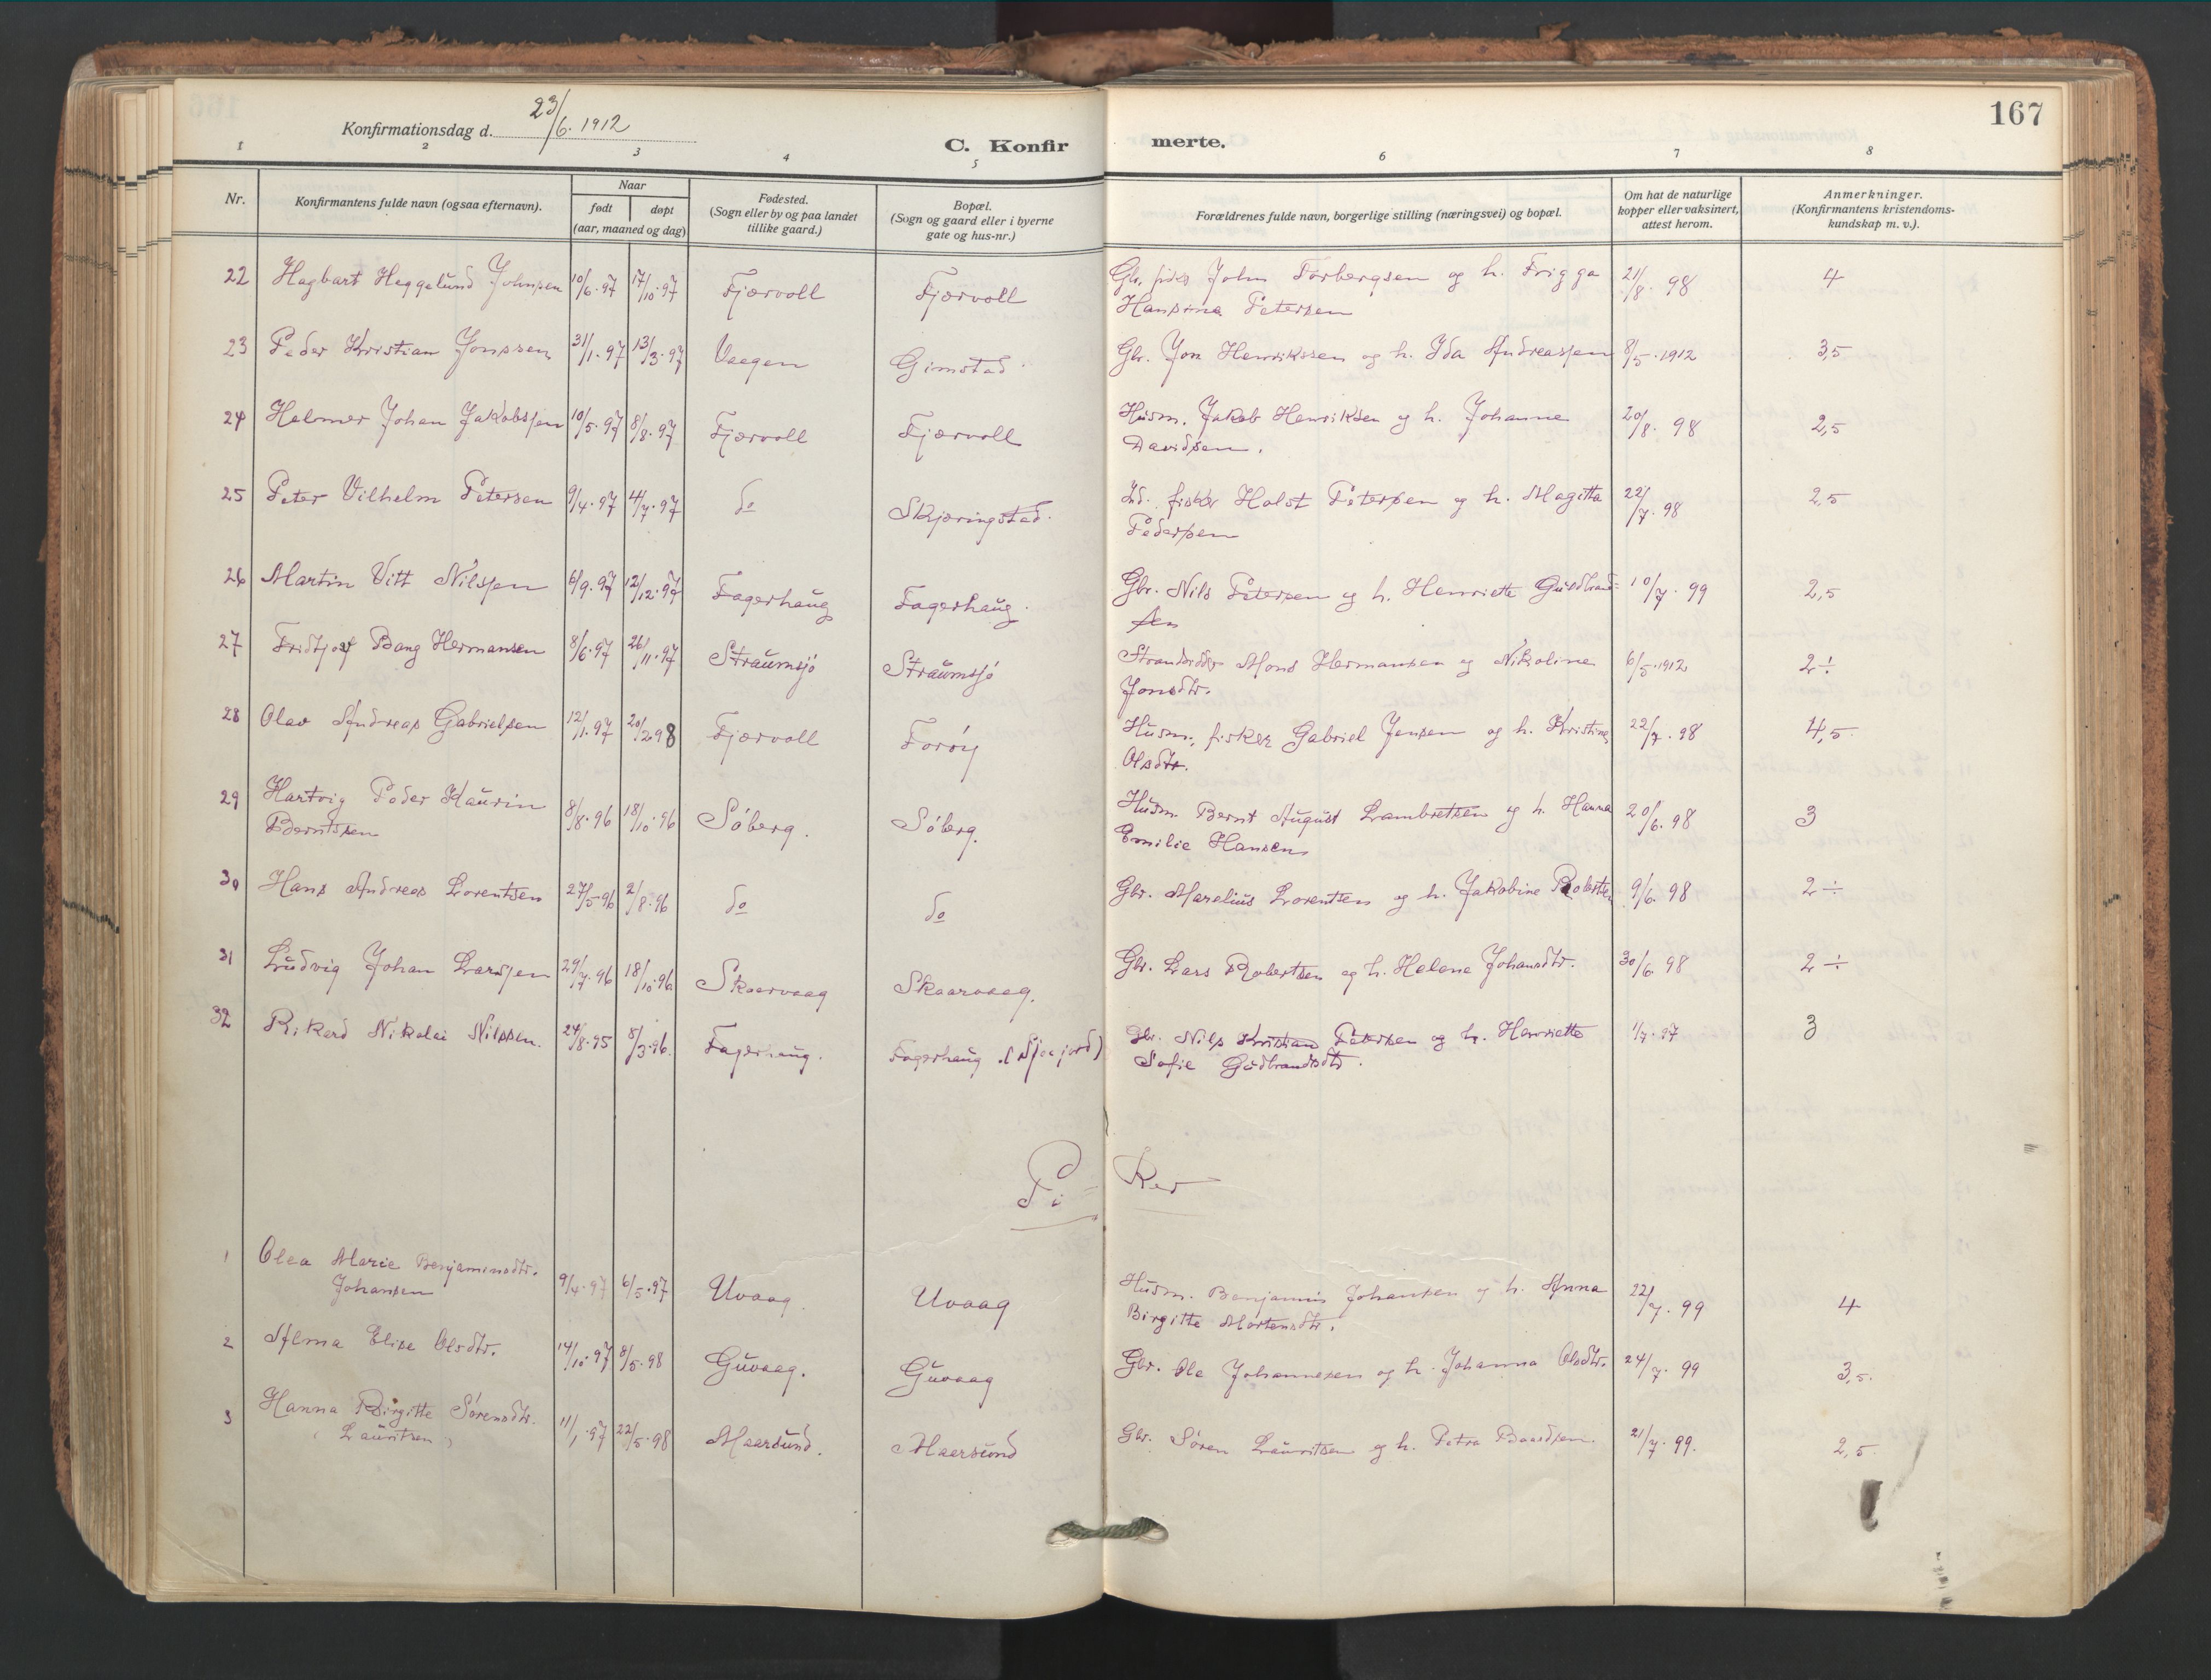 167
Konfirmationsdag d. 23/6. 1912
C. Konfir merte.
1 2 3 4 5 6 7 8
Nr.
Konfirmantens fulde navn (ogsaa efternavn).
Naar
født døpt
(aar, maaned og dag)
Fødested.
(Sogn eller by og paa landet
tillike gaard.)
Bopæl.
(Sogn og gaard eller i byerne
gate og hus-nr.)
Forældrenes fulde navn, borgerlige stilling (næringsvei) og bopæl.
Om hat de naturlige
kopper eller vaksinert,
attest herom.
Anmerkninger.
(Konfirmantens kristendoms-
kundskap m. v.).
22 Hagbart Heggelund Johnsen 10/6.97 17/10.97 Fjærvoll Fjærvoll Gbr. John Torbergsen og h. Frigga 21/8. 98 4
Hansina Petersen
23 Peder Kristian Jonssen 31/1.97 13/3.97 Vaagen Gimstad Gbr. Jon Henrikssen og h. Ida Andreassen 8/5.1912 3,5
24 Helmer Johan Jakobssen 10/5.97 8/8.97 Fjærvoll Fjærvoll Husm. Jakob Henriksen og h. Johanne 20/8. 98 2,5
Davidsen.
25 Peter Vilhelm Petersen 9/4.97 4/7.97 do Skjæringstad. fisker Holst Petersen og h. Magitta 22/7.98 2,5
Pedersen
26 Martin Vitt Nilssen 6/9.97 12/12.97 Fagerhaug Fagerhaug. Gbr. Nils Petersen og h. Henriette Guldbrand= 10/7. 99 2,5
sen
27 Fridtjof Bang Hermansen 8/6.97 26/11.97 Straumsjö Straumsjö Strandsidder Mons Hermansen og Nikoline 6/5.1912 2÷
Jonsdtr.
28 Olav Andreas Gabrielsen 12/1.97 20/2.98 Fjærvoll Forøy Husm., fisker Gabriel Jensen og h. Kristine 22/7.98 4,5
Olsdtr.
29 Hartvig Peder Kaurin 8/8.96 18/10.96 Söberg. Söberg. Husm. Bernt August Lambretsen og h. Hanna 20/6.98 3
Berntsen Emilie Hansen
30 Hans Andreas Lorentsen 27/5.96 2/8.96 do do Gbr. Marelius Lorentsen og h. Jakobine Robertsen 9/6.98 2÷
31 Ludvig Johan Larssen 29/7.96 18/10.96 Skaarvaag Skaarvaag. Gbr. Lars Robertsen og h. Helene Johansdtr. 30/6.98 2÷
32 Rikard Nikolai Nilssen. 24/8.95 8/3.96. Fagerhaug. Fagerhaug. Gbr. Nils Kristian Petersen og h. Henriette 1/7.97 3
Sofie Gudbrandsdtr.
Pi Ker
1 Olea Marie Benjaminsdtr. 9/4.97 6/5.97 Uvaag. Uvaag Husm. Benjamin Johansen og h. Anna 22/7. 99 4
Johansen Birgitte Mortensdtr.
2 Alma Elise Olsdtr. 14/10.97 8/5.98 Guvaag. Guvaag Gbr. Ole Johannesen og h. Johanna Olsdtr. 24/7. 99 3,5.
3 Hanna Birgitte Sørensdtr. 11/1.97 22/5.98 Maarsund. Maarsund Gbr. Søren Lauritsen og h. Petra Baardsen. 21/7.99. 2,5
(Lauritsen)